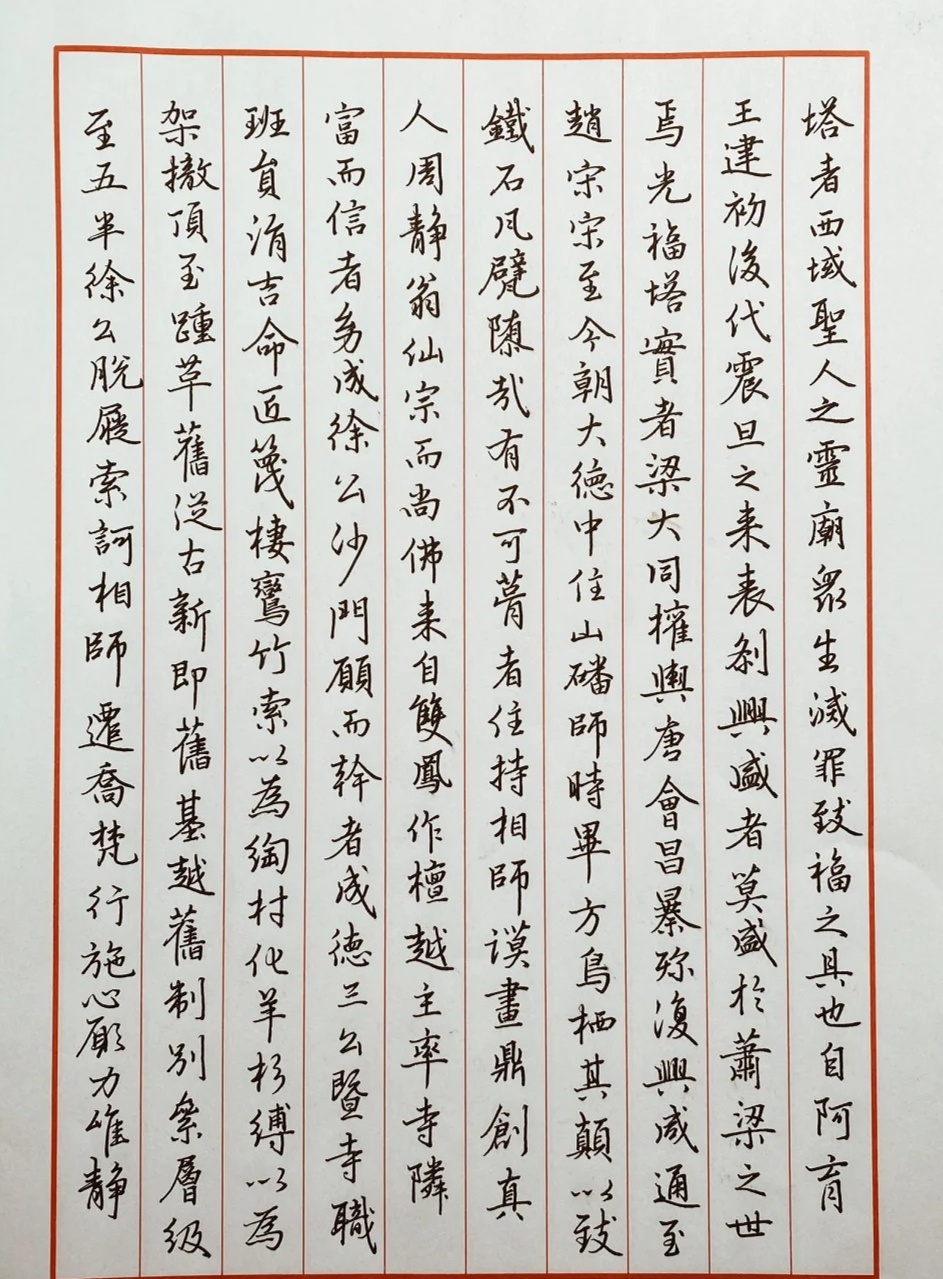 塔者西域聖人之靈廟眾生滅罪致福之具也自阿育
王建初後代震旦之来表刹興盛者莫盛於蕭梁之世
焉光福塔實者梁大同擢輿唐會昌暴殄復興咸通至
趙宋宋至今朝大德中住山磻師時畢方鳥栖其顛以致
鐵石凡甓隳哉有不可菁者住持相師謨畫鼎創真
人周靜翁仙宗而尚佛来自雙鳳作檀越主率寺隣
富而信者務成徐公沙門願而幹者成德三公暨寺職
班負涓吉命匠篾棲鸞竹索以為綯村化羊杉縛以為
架撤頂至踵革舊從古新即舊基越舊制別䋣層級
至五半徐公脫屣索訶相師遷喬梵行施心願力惟靜